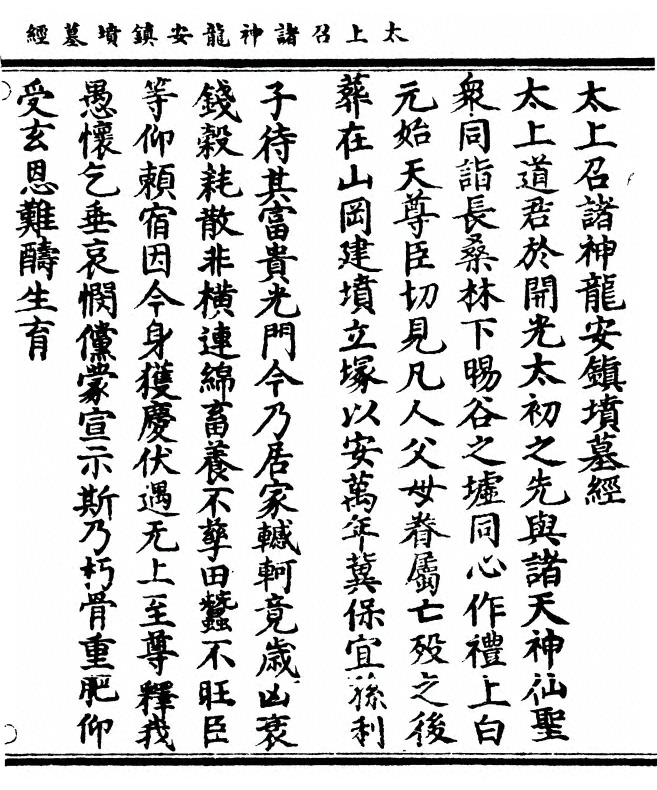 太上召諸神龍安鎮墳墓經
太上召諸神龍安鎮墳墓經
太上道君於開光太初之先與諸天神仙聖
衆同詣長桑林下暘谷之墟同心作禮上白
元始天尊臣切見凡人父母眷屬亡殁之後
葬在山岡建墳立塚以安萬年冀保宜孫利
子待其富貴光門今乃居家轗軻竟歲凶衰
錢穀耗散非橫連綿畜養不孳田蠶不旺臣
等仰賴宿因今身獲慶伏遇无上至尊釋我
愚懷乞垂哀憫儻蒙宣示斯乃朽骨重肥仰
受玄恩難醻生育